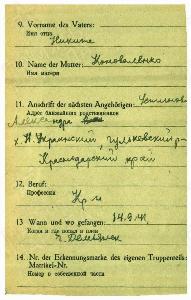 9. Vorname des Vaters:
Имя отца
Никита
10. Name der Mutter: Коноваленко
Имя матери
11. Anschrift der nächsten Angehörigen:
Адрес ближайших родственников
Александра
х. Н. Украинский Гулькевский р-
Краснодарский край
12. Beruf:
Профессия
13. Wann und wo gefangen: 14.9.41
Когда и где попал в плен
14. Nr. der Erkennungsmarke des eigenen Truppenteils:
Matrikel-Nr.
Номер в собственной части